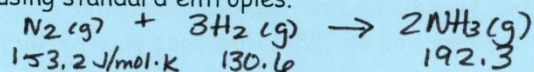 using standard entropies.
N₂(g) + 3H₂(g) → 2NH₃(g)
153.2 J/mol·K 130.6 192.3